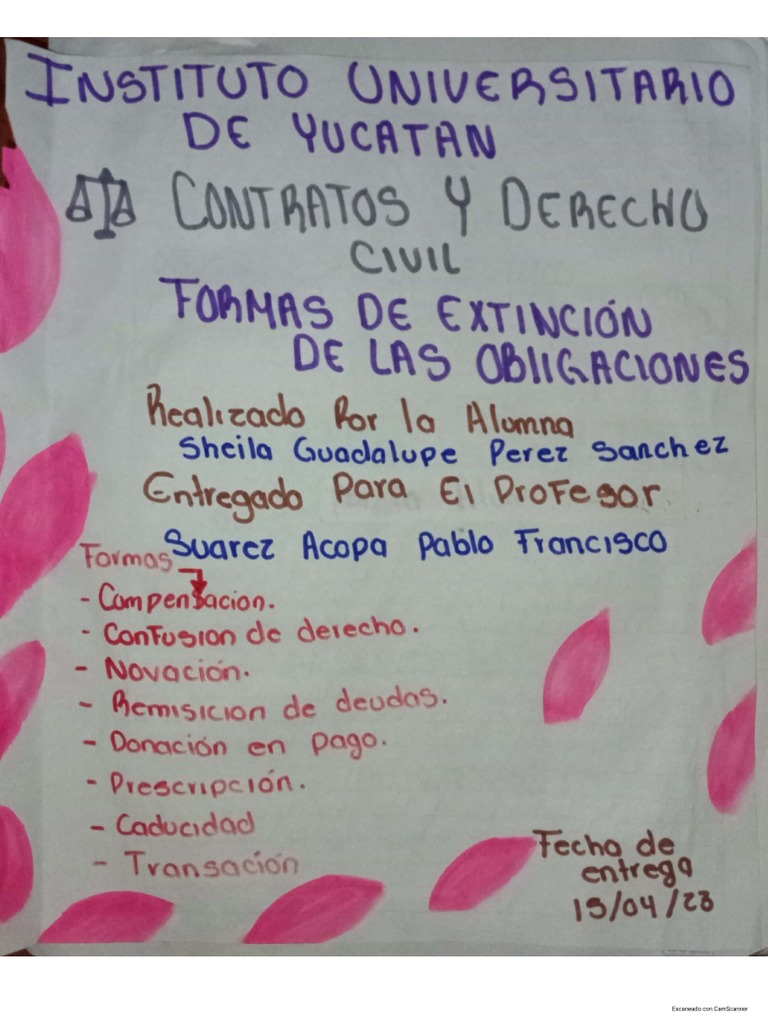 INSTITUTO UNIVERSITARIO
DE YUCATAN
CONTRATOS Y DERECHO
CIVIL
FORMAS DE EXTINCIÓN
DE LAS OBLIGACIONES
Realizado Por la Alumna
Sheila Guadalupe Perez Sanchez
Entregado Para El Profesor
Suarez Acopa Pablo Francisco
Formas
- Compensacion.
- Confusion de derecho.
- Novación.
- Remisicion de deudas.
- Donación en pago.
- Prescripción.
- Caducidad
- Transación
Fecha de
entrega
15/04/23
Escaneado con CamScanner